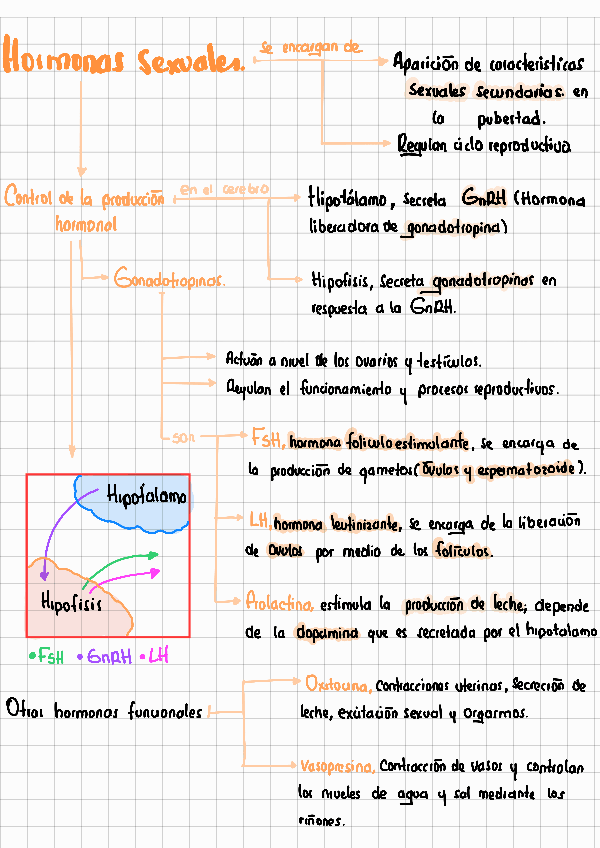 Hormonas Sexuales.
se encargan de
Aparición de caracteristicas
Sexuales secundarias. en
la pubertad.
Regulan ciclo reproductivo
Control de la producción
hormonal
en el cerebro
Hipotálamo, secreta GnRH (Hormona
liberadora de gonadotropina)
Hipofisis, secreta gonadotropinas en
respuesta a la GnRH.
Gonadotropinas.
Actuán a nivel de los ovarios y testículos.
Regulan el funcionamiento y procesos reproductivos.
son
FSH, hormona foliculoestimulante, se encarga de
la producción de gametos (Óvulos y espermatozoide).
LH, hormona leutinizante, se encarga de la liberación
de Óvulos por medio de los folículos.
Prolactina, estimula la producción de leche; depende
de la dopamina que es secretada por el hipotalamo
Hipotalamo
Hipofisis
•FSH •GnRH •LH
Otras hormonas funcionales
Oxitocina, Contracciones uterinas, Secreción de
leche, exitación sexual y Orgasmos.
Vasopresina, Contracción de vasos y controlan
los niveles de agua y sal mediante los
riñones.